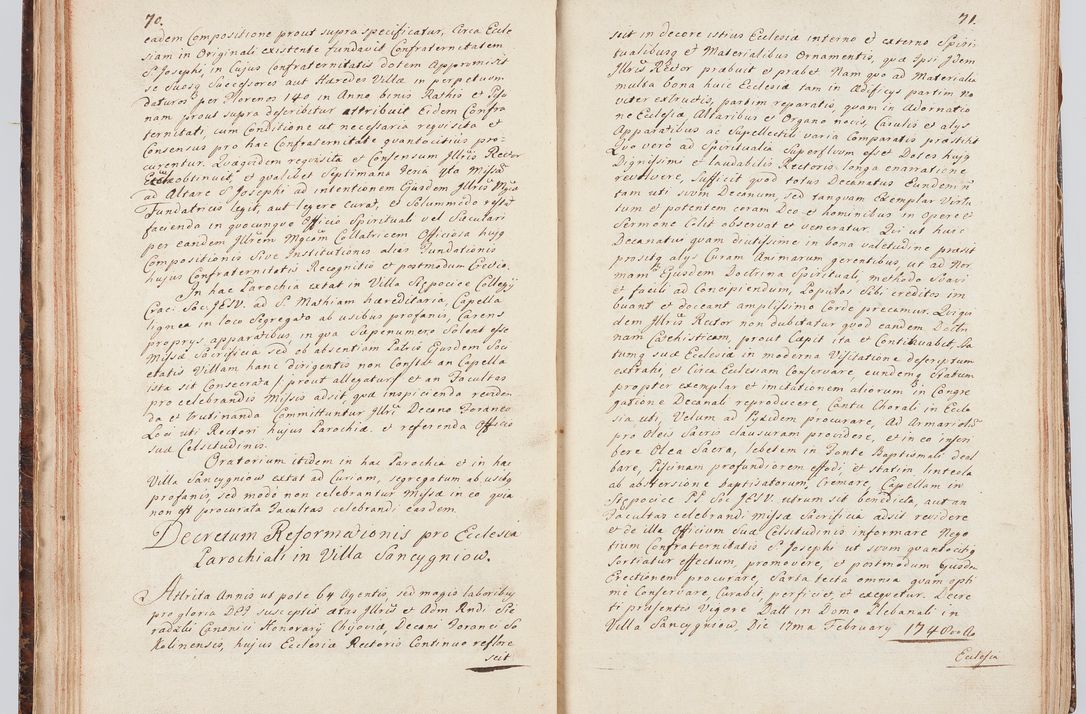 70.
eadem Compositione prout supra specificatur, Circa Eccle
siam in Originali existente fundavit Confraternitatem
S. Josephi, in Cujus Confraternitatis dotem Appromisit
se suosq Successores aut Hæredes Villæ in perpetuum
daturos per florenos 140 in Anno binis Rathis et Pen
nam prout supra describitur attribuit Eidem Confra
ternitati, cum Conditione ut necessaria requisita et
Consensus pro hac Confraternitate quantocitius pro-
curentur. Quæquidem requisita et Consensum Illris Rector
obtinuit, et qualibet Septimana feria 4ta Missā
ad Altare S. Josephi ad intentionem Ejusdem Illris Mgcæ
Fundatricis legit, aut legere curat, et Solummodo restat
facienda in quocunque Officio Spirituali vel Sæculari
per eandem Illrem Mgcam Collatricem Officiosa hujq
Compositionis Sive Institutionis alias Fundationis
hujus Confraternitatis Recognitio et postmodum Erectio.
In hac Parochia extat in Villa Stępocice Collegij
Crac: Soc. JESV. ad S. Mathiam hæreditaria, Capella
lignea in loco Segregato ab usibus profanis, Carens
proprys apparatibus, in qua Sæpenumero Solent esse
Missæ Sacrificia sed ob absentiam Patris Ejusdem Soci
etatis Villam hanc dirigentis non Constat an Capella
ista sit Consecrata / prout allegatur / et an Facultas
pro celebrandis Missis adsit, quæ inspicienda reviden
da et trutinanda Committuntur Illri Decano Foraneo
Loci uti Rectori hujus Parochiæ. et referenda Officio
suæ Celsitudinis.
Oratorium itidem in hac Parochia et in hac
Villa Sancygniow extat ad Curiam, segregatum ab usibq
profanis, sed modo non celebrantur Missæ in eo quia
non est procurata Facultas celebrandi easdem.
Decretum Reformationis pro Ecclesia
Parochiali in Villa Sancygniow.
Attrita Annis ut pote 64 Agentis, sed magis laboribq
pro gloria DEI susceptis ætas Illris et Adm Rndi Sie
radzki Canonici Honorarij Chijoviæ, Decani Foranei So
kolinensis, hujus Ecclesiæ Rectoris Continuo reflore
scit
71.
scit in decore istius Ecclesiæ interno et externo Spiri
tualibusq et Materialibus Ornamentis, quæ Ipsi Idem
Illris Rector præbuit et præbet. Nam quo ad Materialia
multa bona huic Ecclesiæ tam in Ædificys partim no
viter extructis, partim reparatis, quam in Adornatio
ne Ecclesiæ Altaribus et Organo novis, Casulis et alys
Apparatibus ac Supellectili varia Comparatis præstitit
Quo vero ad Spiritualia Superfluum esset Dotes hujq
Dignissimi et laudabilis Rectoris longa enarratione
revolvere, Sufficit quod totus Decanatus Eundem n̄
tam uti suum Decanum, sed tanquam Exemplar Virtu
tum et potentem coram Deo et hominibus in opere et
Sermone Colit observat et veneratur. Qui ut huic
Decanatus quam diutissime in bona valetudine præsit
prositq alys Curam Animarum gerentibus, ut ad Nor
mam Ejusdem Doctrina Spirituali, methodo Suavi
et facili ad Concipiendum, Populos Sibi creditos im
buant et doceant amplissimo Corde precamur. Qui qui
dem Illris Rector non dubitatur quod eandem Doctri
nam Cathechisticam, prout Cæpit ita et Continuabit, Sta
tumq suæ Ecclesiæ in moderna Visitatione descriptum
extrahi, et Circa Ecclesiam Conservare, eundemq Statum
propter exemplar et imitationem aliorum in Congre
gatione Decanali reproducere, Cantu Chorali in Eccle
sia uti, Velum ad Pyxidem procurare, Ad Armariolū
pro Oleis Sacris clausuram providere, et in eo inscri
bere Olea Sacra, lebetem in Fonte Baptismali deal
bare, Piscinam profundiorem effodi, et statim linteola
ab abstersione baptisatorum, Cremare, Capellam in
Stępocice PP. Soc. JESV. utrum sit benedicta, aut an
Facultas celebrandi Missæ Sacrificia adsit revidere
et de illa Officium Suæ Celsitudinis informare Nego
tium Confraternitatis S. Josephi ut suum quantocitq
Sortiatur effectum, promovere, et postmodum ejusdem
Erectionem procurare, Sarta tecta omnia quam opti
me Conservare, Curabit, perficiet, et exequetur. Decre
ti præsentis Vigore. Datt in Domo Plebanali in
Villa Sancygniow, Die 17ma February 1748vo Ao
Ecclesia